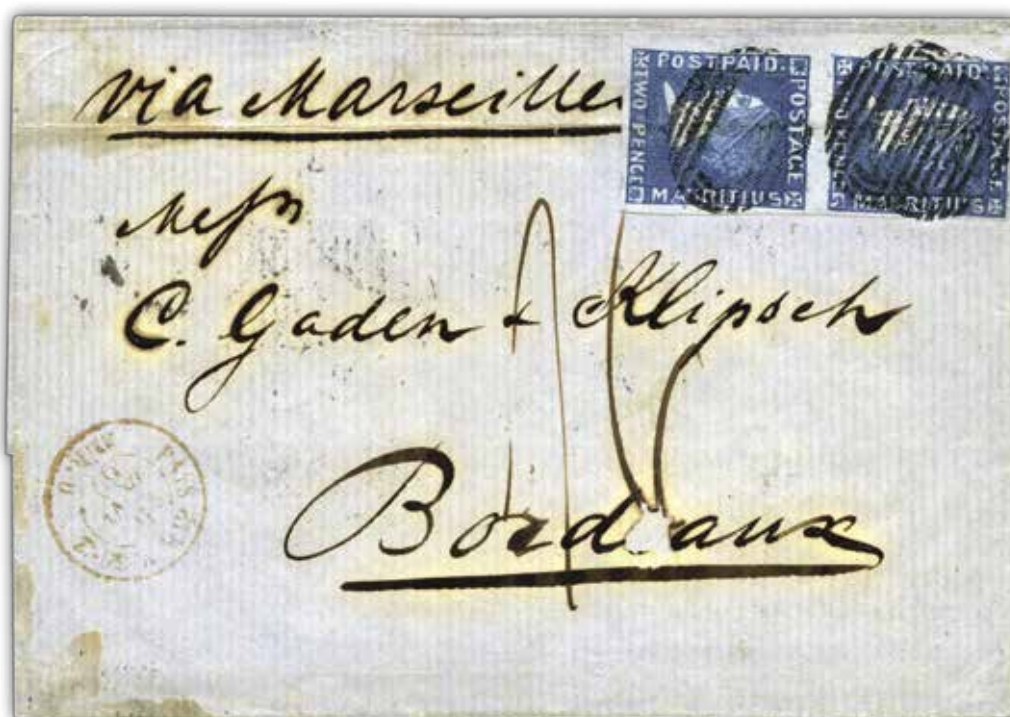 via Marseilles
POSTPAID.
TWO PENCE
POSTAGE
MAURITIUS
POSTPAID.
POSTAGE
MAURITIUS
Mess
C. Gaden & Klipsch
Bordeaux